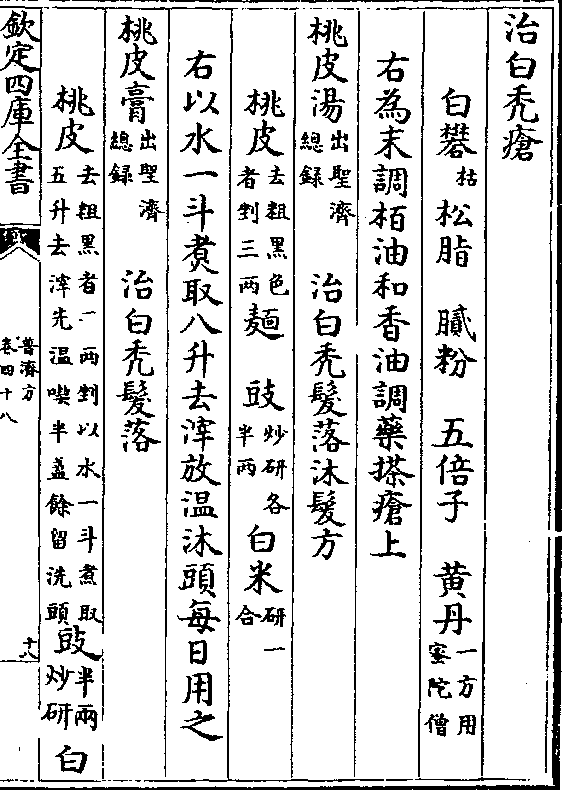 治白禿瘡
白礬枯 松脂 膩粉 五倍子 黄丹一方用蜜陀僧
右為末調栢油和香油調藥搽瘡上
桃皮湯出聖濟總録 治白禿髮落沐髮方
桃皮去粗黑色者剉三兩 麺 豉炒研各半兩 白米研一合
右以水一斗煑取八升去滓放温沐頭每日用之
桃皮膏出聖濟總録 治白禿髮落
桃皮去粗黑者一兩剉以水一斗煮取五升去滓先温喫半盞餘留洗頭 豉半兩炒研 白
欽定四庫全書
普濟方
卷四十八
十八